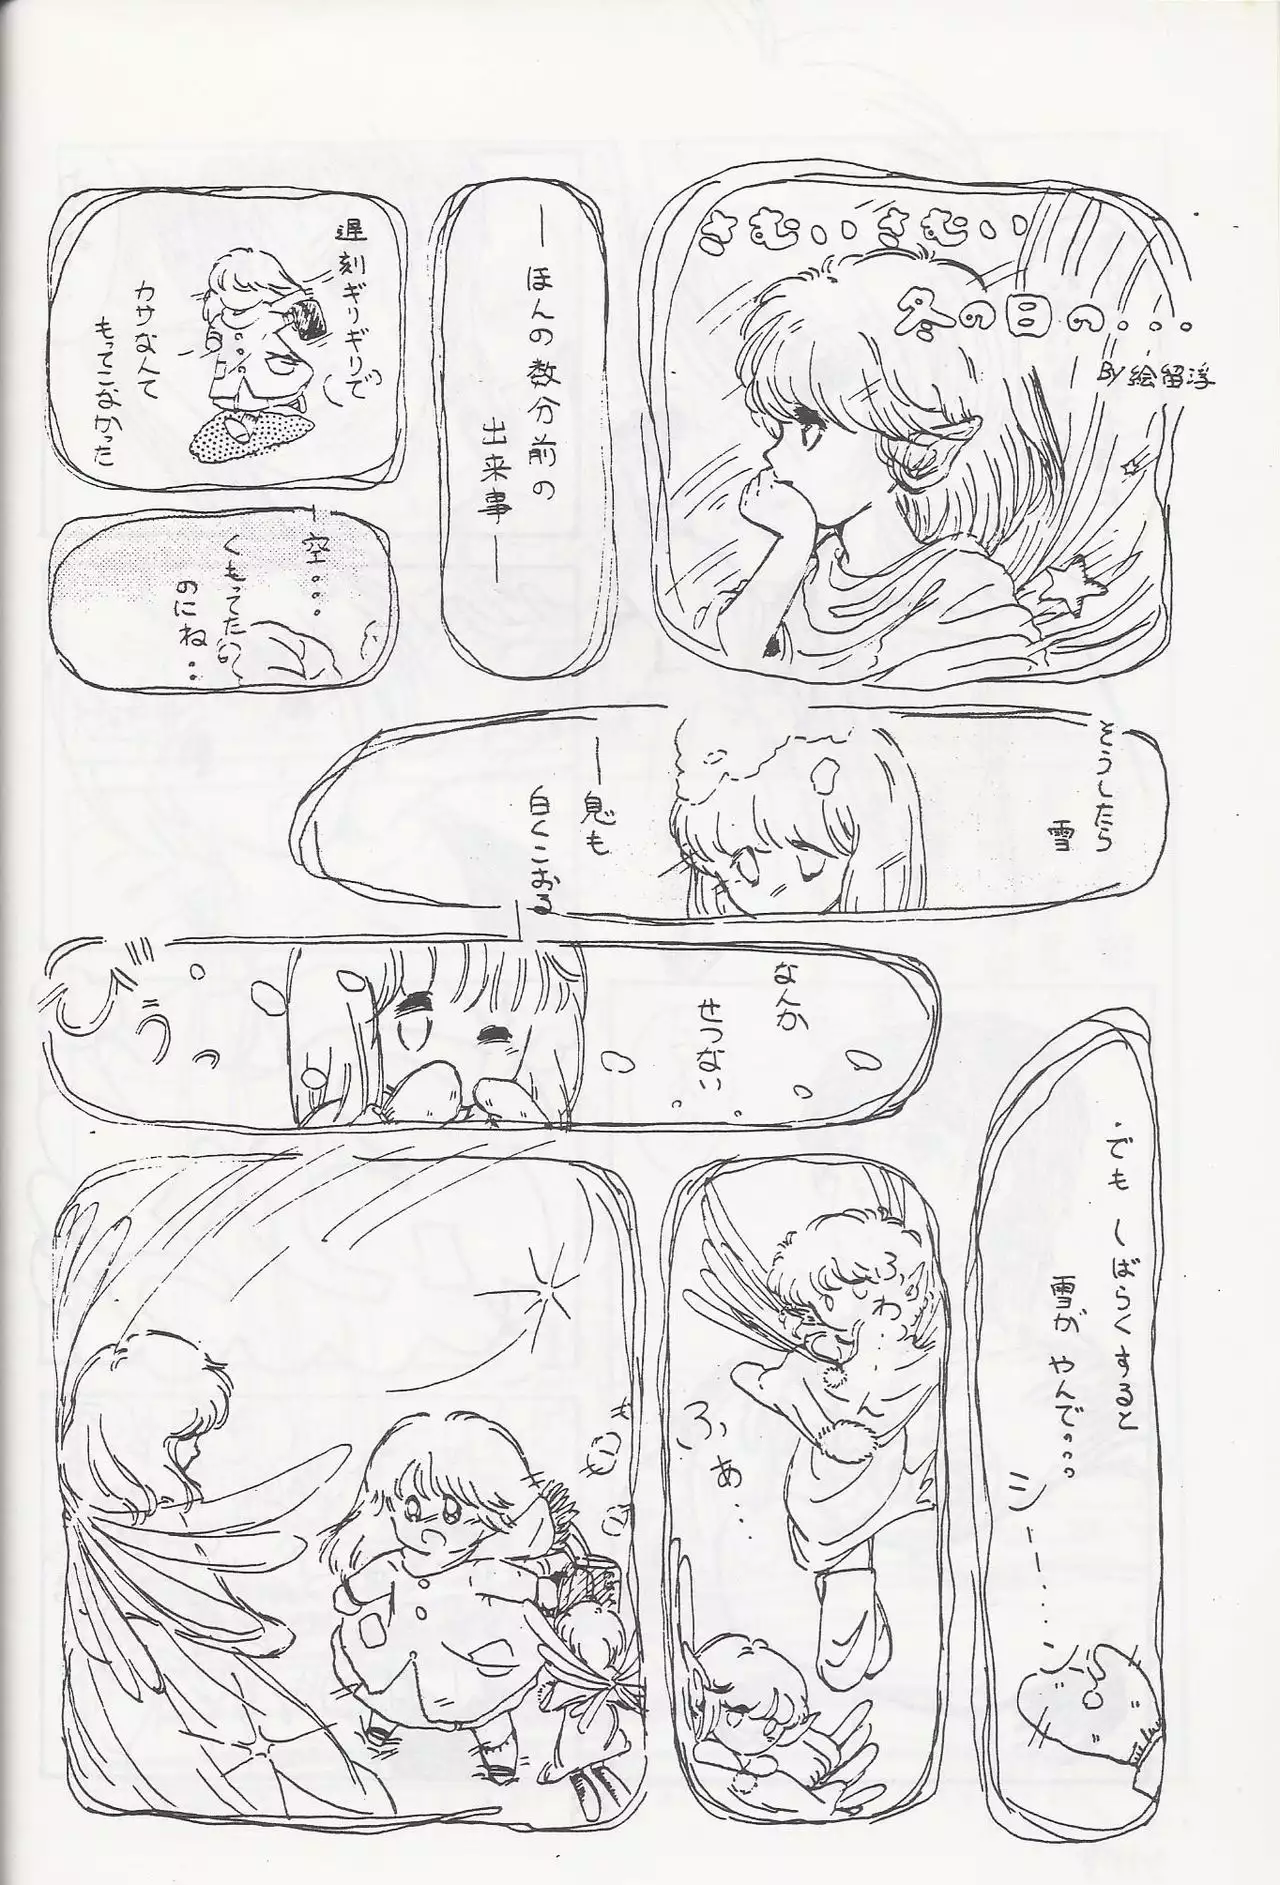 さむいさむい
冬の日の...
By 絵留浮
―ほんの数分前の
出来事―
遅刻ギリギリで
カサなんて
もってこなかった
空。。。
くもってたの
のにね..
そうしたら
雪
―息も
白くこおる
なんか
せつない
でも しばらくすると
雪が やんで。。。
シー....ン
ふわ...ん
ふぁ...